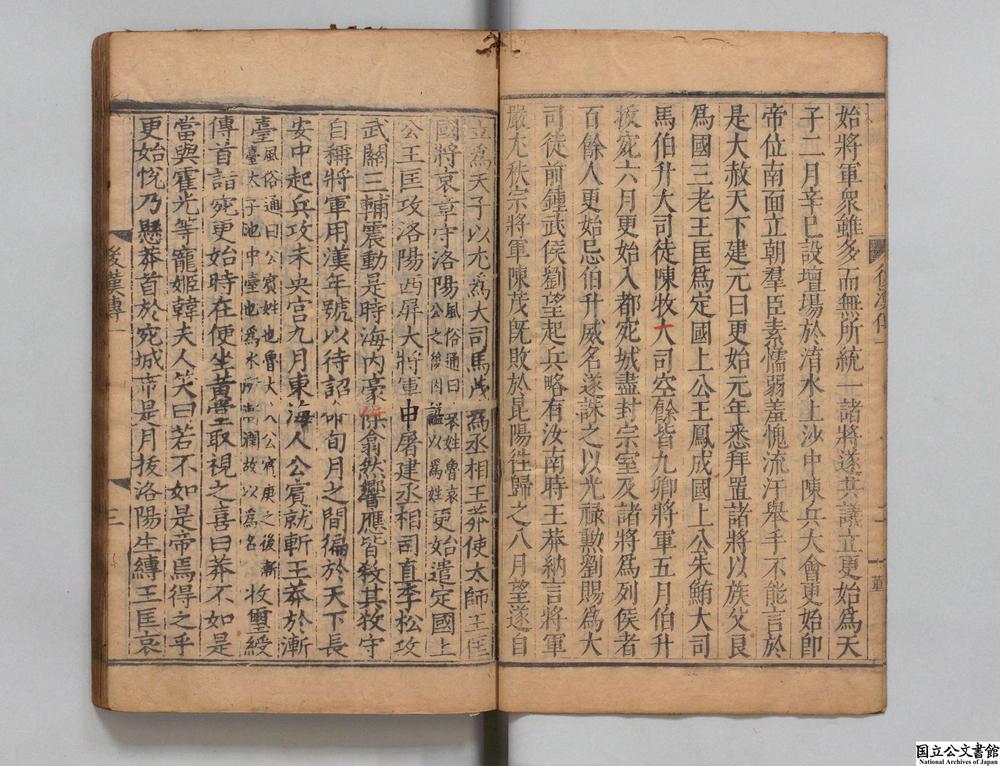 始將軍衆雖多而無所統一諸將遂共議立更始爲天
子二月辛巳設壇場於淯水上沙中陳兵大會更始卽
帝位南面立朝羣臣素懦弱羞愧流汗舉手不能言於
是大赦天下建元曰更始元年悉拜置諸將以族父良
爲國三老王匡爲定國上公王鳳成國上公朱鮪大司
馬伯升大司徒陳牧大司空餘皆九卿將軍五月伯升
拔宛六月更始入都宛城盡封宗室及諸將爲列侯者
百餘人更始忌伯升威名遂誅之以光祿勳劉賜爲大
司徒前鍾武侯劉望起兵略有汝南時王莽納言將軍
嚴尤秩宗將軍陳茂旣敗於昆陽往歸之八月望遂自
後漢傳一
立爲天子以尤爲大司馬茂爲丞相王莽使太師王匡
國將哀章守洛陽風俗通曰哀姓魯哀公之後因謚以爲姓更始遣定國上
公王匡攻洛陽西屏大將軍申屠建丞相司直李松攻
武關三輔震動是時海內豪傑翕然響應皆殺其牧守
自稱將軍用漢年號以待詔命旬月之間徧於天下長
安中起兵攻未央宮九月東海人公賔就斬王莽於漸
臺風俗通曰公賔姓也魯大夫公賔庚之後漸臺太子池中臺也爲水所漸潤故以爲名收璽綬
傳首詣宛更始時在便坐黃堂取視之喜曰莽不如是
當與霍光等寵姬韓夫人笑曰若不如是帝焉得之乎
更始悅乃懸莽首於宛城市是月拔洛陽生縛王匡哀
後漢傳一
三
国立公文書館
National Archives of Japan